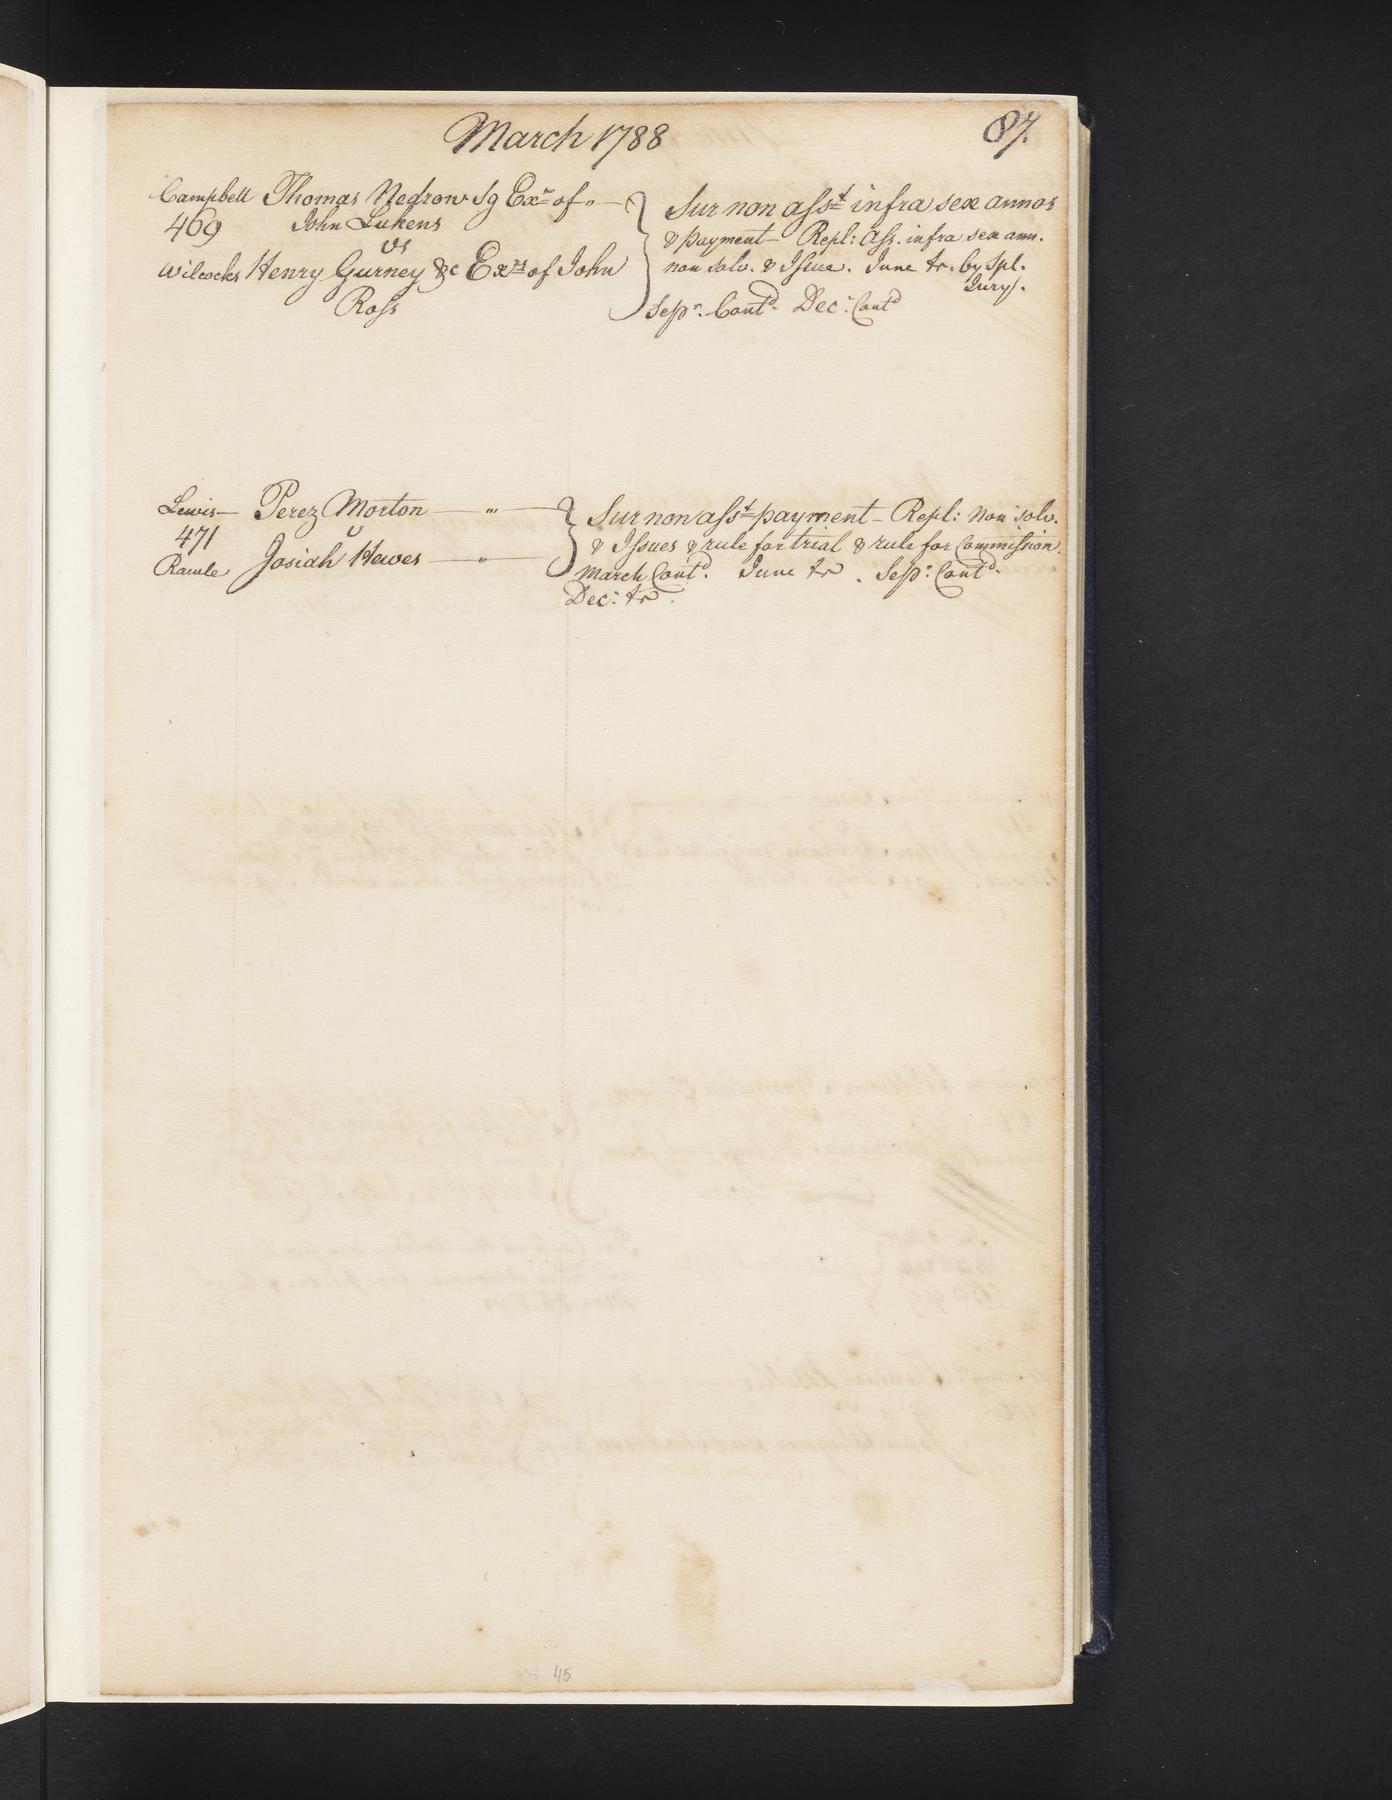 March 1788
87.
Campbell Thomas Nedrow Sg Exr of " — Sur non asst infra sex annos
469 John Lukens & payment — Repl: Ass. infra sex ann.
vs
Wilcocks Henry Gurney &c Exrs of John non solv. & Issue. June tr. by Spl. Jury.
Ross Sepr. Contd. Dec: Contd
Lewis — Perez Morton — " — Sur non asst payment — Repl: Non solv.
471 v & Issues & rule for trial & rule for Commission.
Rawle Josiah Hewes — " March Contd. June tr. Sepr: Contd.
Dec: tr.
45